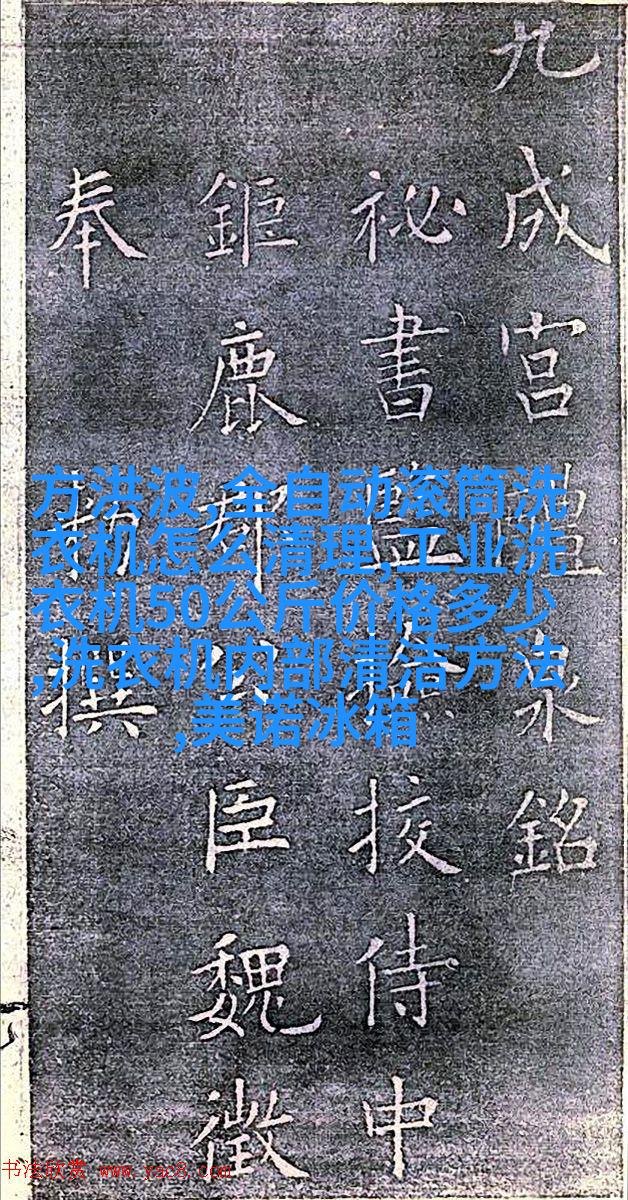 九成宮醴泉銘
祕書監撿挍侍中
鉅鹿郡公臣魏徵
奉勑撰
方洪波,全自动滚筒洗
衣机怎么清理,工业洗
衣机50公斤价格多少
,洗衣机内部清洁方法
,美诺冰箱
书法欣赏 www.yac8.com